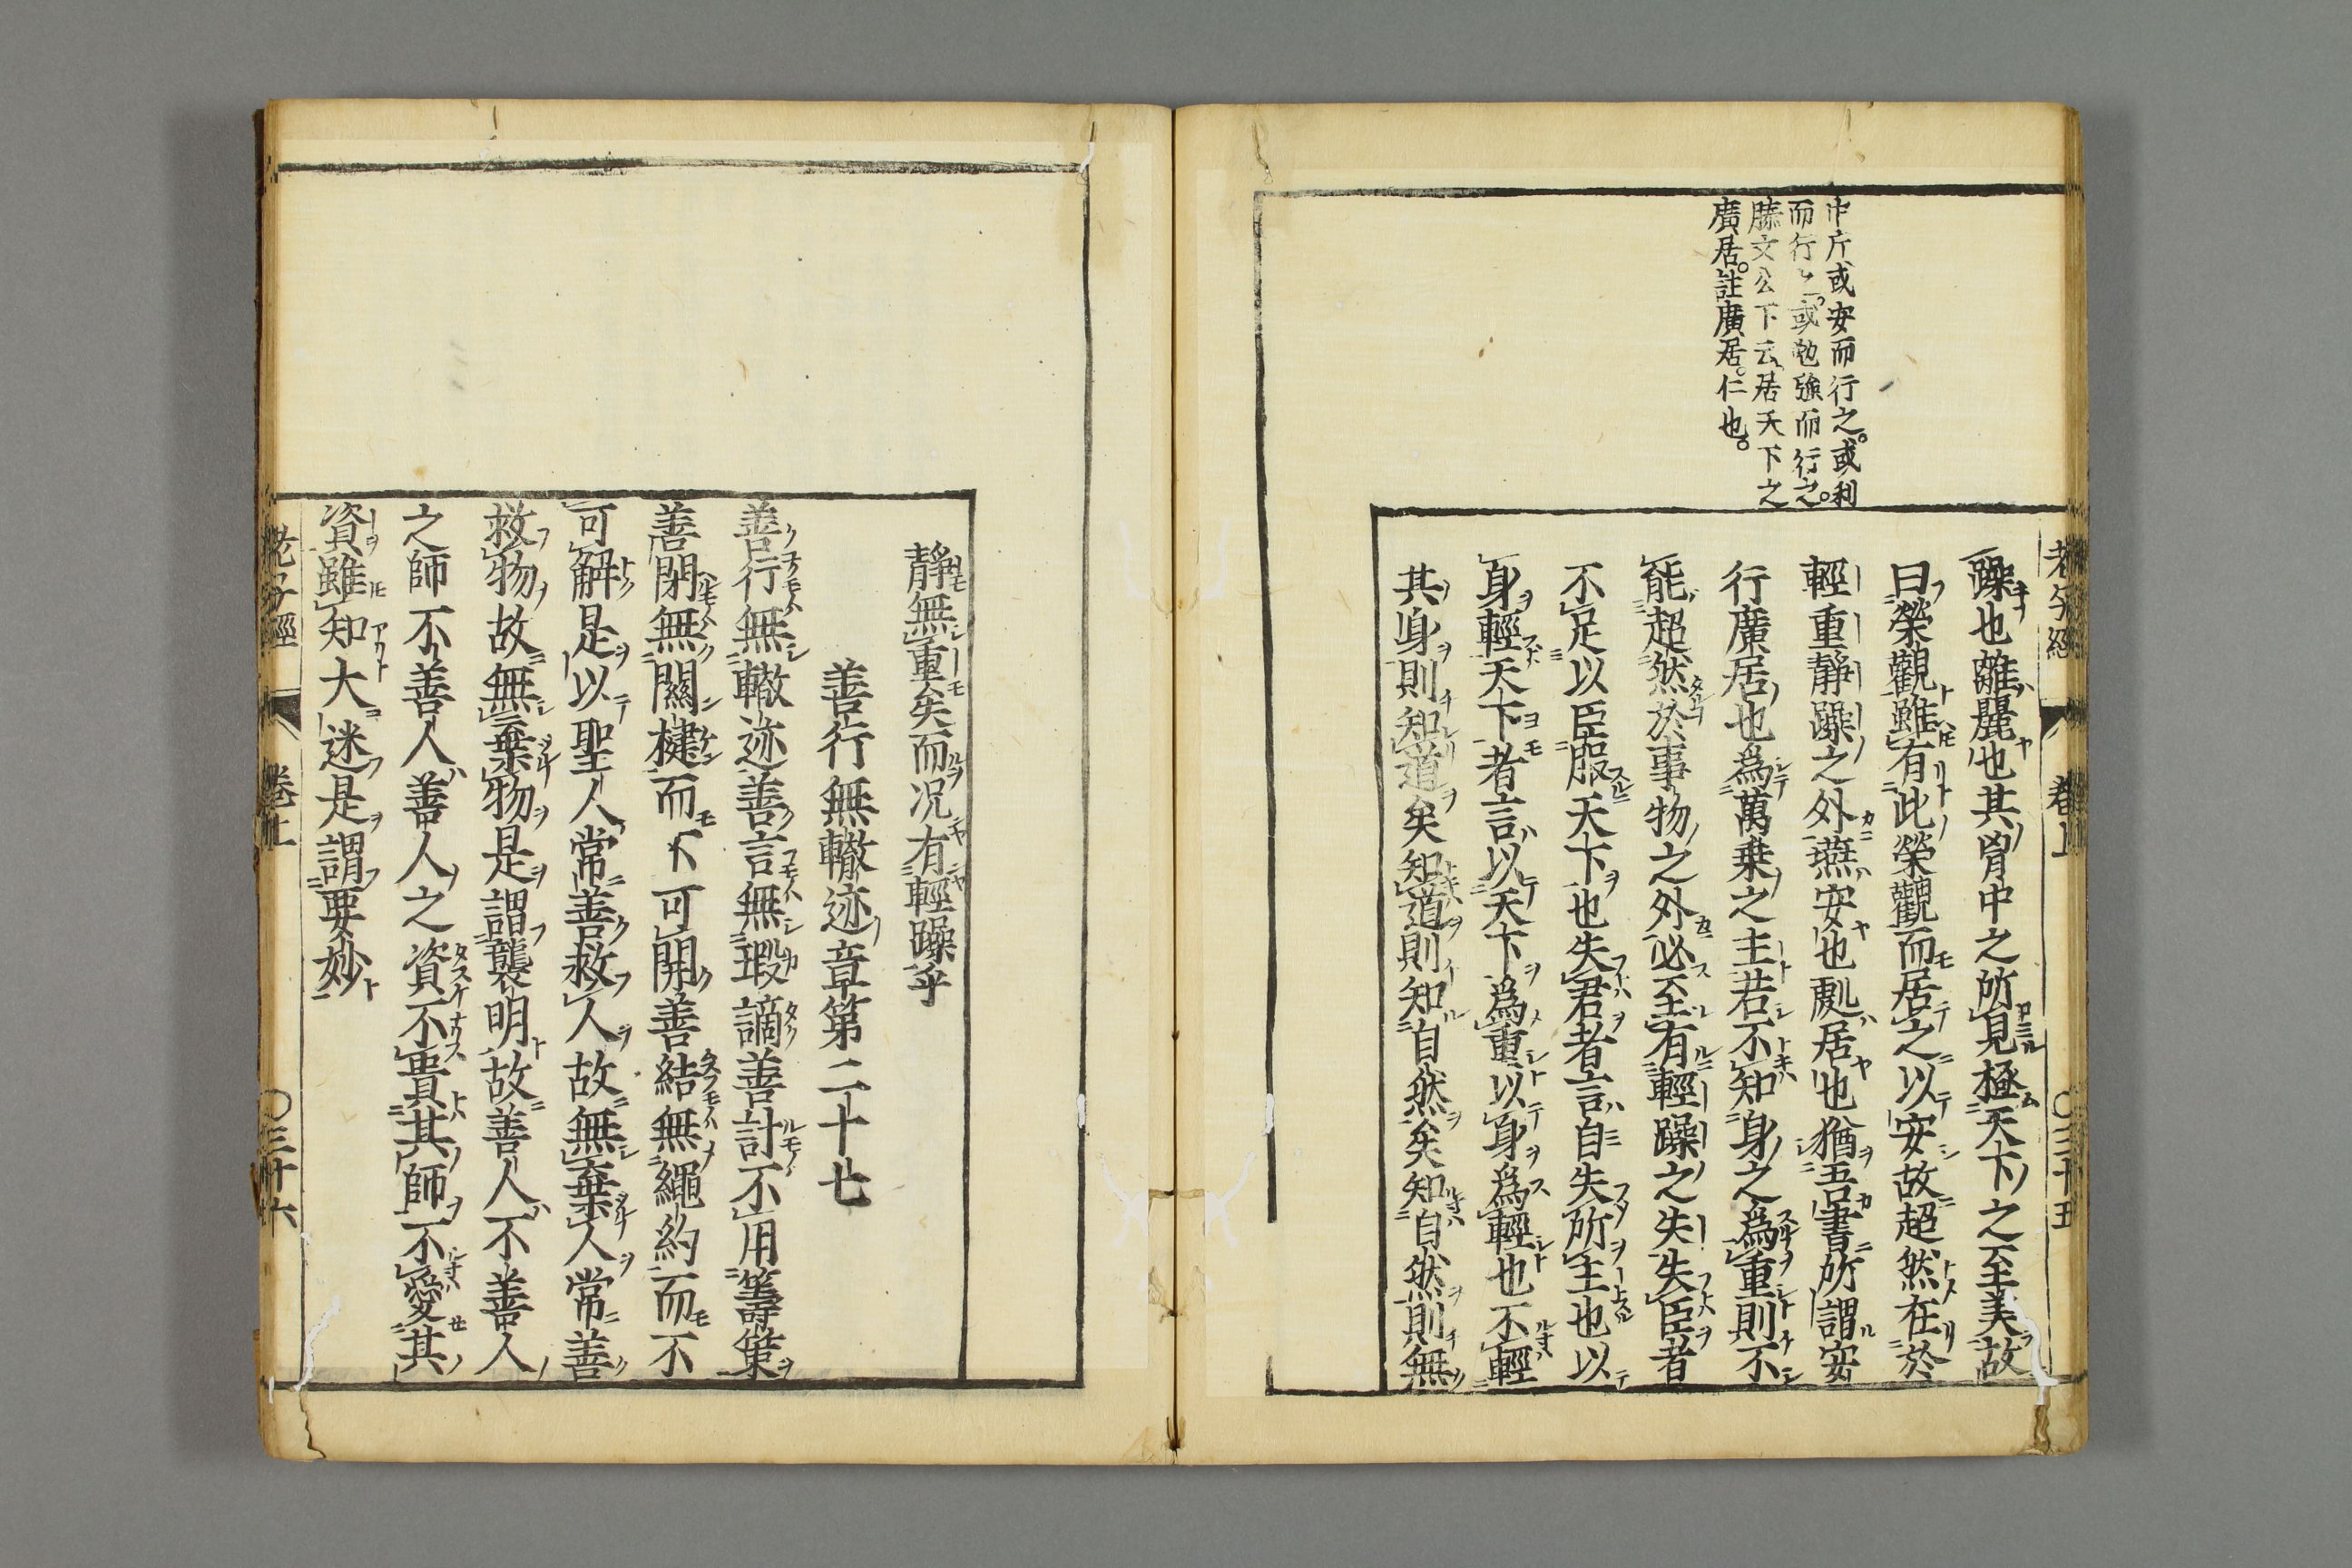 老子經 卷上 〇三十五
中斤或安而行之。或利
而行之。或勉強而行之。
滕文公下云居天下之
廣居。註廣居。仁也。
躁也離麗也其胷中之所見極天下之至美故
曰榮觀雖有此榮觀而居之以安故超然在於
輕重靜躁之外燕安也處居也猶吾書所謂安
行廣居也爲萬乗之主若不知身之爲重則不
能超然於事物之外必至有輕躁之失失臣者
不足以臣服天下也失君者言自失所主也以
身輕天下者言以天下爲重以身爲輕也不輕
其身則知道矣知道則知自然矣知自然則無
靜無重矣而况有輕躁乎
善行無轍迹章第二十七
善行無轍迹善言無瑕謫善計不用籌策
善閉無關楗而不可開善結無繩約而不
可解是以聖人常善救人故無棄人常善
救物故無棄物是謂襲明故善人不善人
之師不善人善人之資不貴其師不愛其
資雖知大迷是謂要妙
老子經 卷上 〇三十六